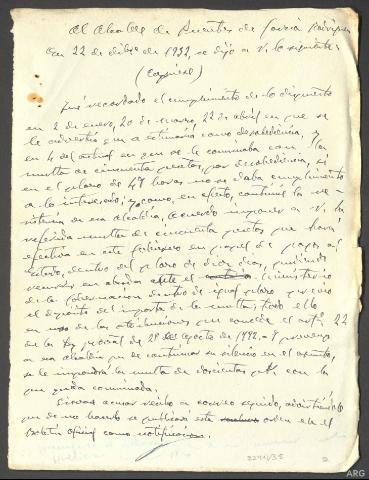 Al Alcalde de Puentes de García Rodríguez
en 22 de dibre de 1932, se dijo a V. lo siguiente:
(Cópiese)
Fué recordado el cumplimiento de lo dispuesto
en 2 de enero, 20 de marzo, 22 de abril en que se
le advertía que a estimaría como desobediencia, y
en 4 del actual en que se le conminaba con la
multa de cincuenta pesetas por desobediencia, si
en el plazo de 48 horas no se daba cumplimiento
a lo interesado; y como, en efecto, continúa la re-
sistencia de esa alcaldía, acuerdo imponer a V. la
referida multa de cincuenta pesetas que hará
efectiva en este Gobierno en papel de pagos al
Estado, dentro del plazo de diez días, pudiendo
recurrir en alzada ante el Ministerio
de la Gobernación dentro de igual plazo previo
el depósito del importe de la multa; todo ello
en uso de las atribuciones que concede el artº 22
de la ley provincial de 29 de agosto de 1882. = Y prevengo
a esa alcaldía que de continuar su silencio en el asunto,
se le impondrá la multa de doscientas pts. con la
que queda conminada.
Sírvase acusar recibo a correo seguido, advirtiéndole
que de no hacerlo se publicará esta orden en el
Boletín Oficial como notificación.
2241/35
2
ARG